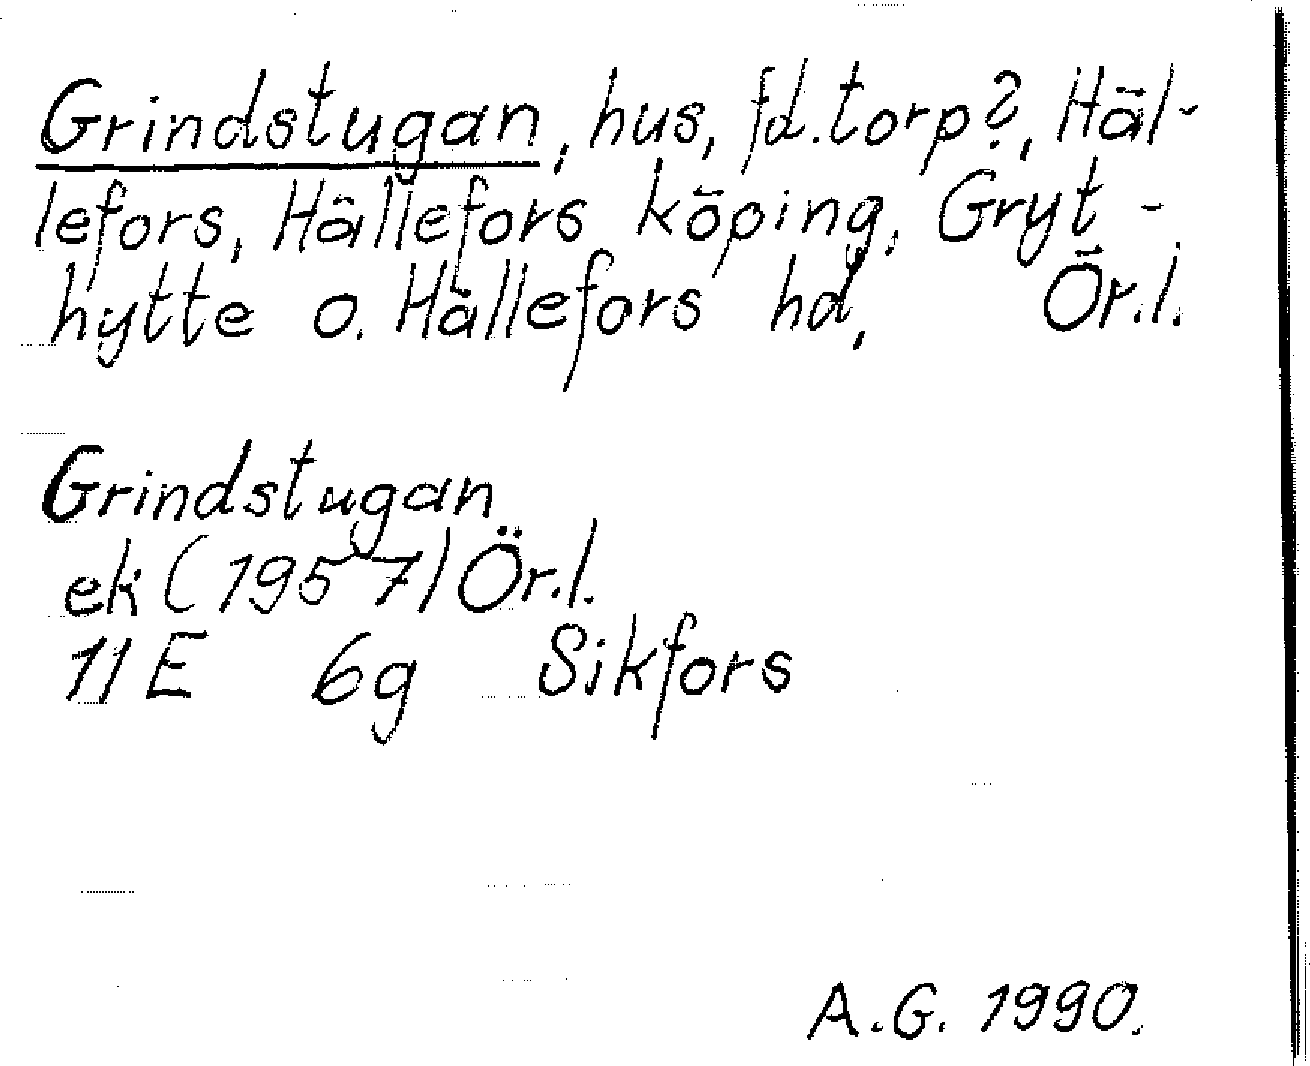 Grindstugan, hus, fd. torp?, Häl-
lefors, Hällefors köping, Gryt-
hytte o. Hällefors hd, Ör.l.
Grindstugan
ek (1957) Ör.l.
11E 6g Sikfors
A.G. 1990.